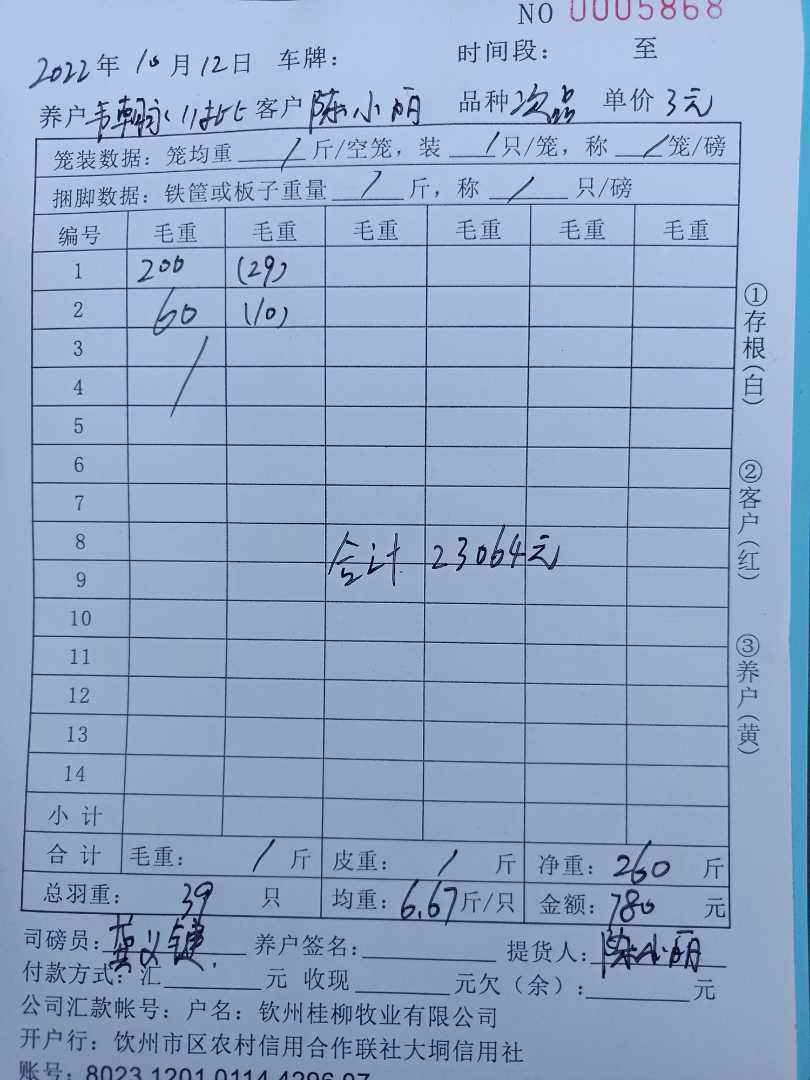 NO 0005868
2022年 10月12日 车牌： 时间段： 至
养户 韦朝 11批 客户 陈小丽 品种 次品 单价 3元
笼装数据：笼均重 / 斤/空笼，装 / 只/笼，称 / 笼/磅
捆脚数据：铁筐或板子重量 / 斤，称 / 只/磅
编号 毛重 毛重 毛重 毛重 毛重 毛重
1 200 (29)
2 60 (10)
3
4
5
6
7
8
合计 23064元
9
10
11
12
13
14
小计
合计 毛重： / 斤 皮重： / 斤 净重：260 斤
总羽重： 39 只 均重：6.67斤/只 金额：780 元
司磅员： 养户签名： 提货人：陈小丽
付款方式：汇 元 收现 元欠（余）： 元
公司汇款帐号：户名：钦州桂柳牧业有限公司
开户行：饮州市区农村信用合作联社大垌信用社
账号：8023 1201 0114 4296 07
①存根(白)
②客户(红)
③养户(黄)